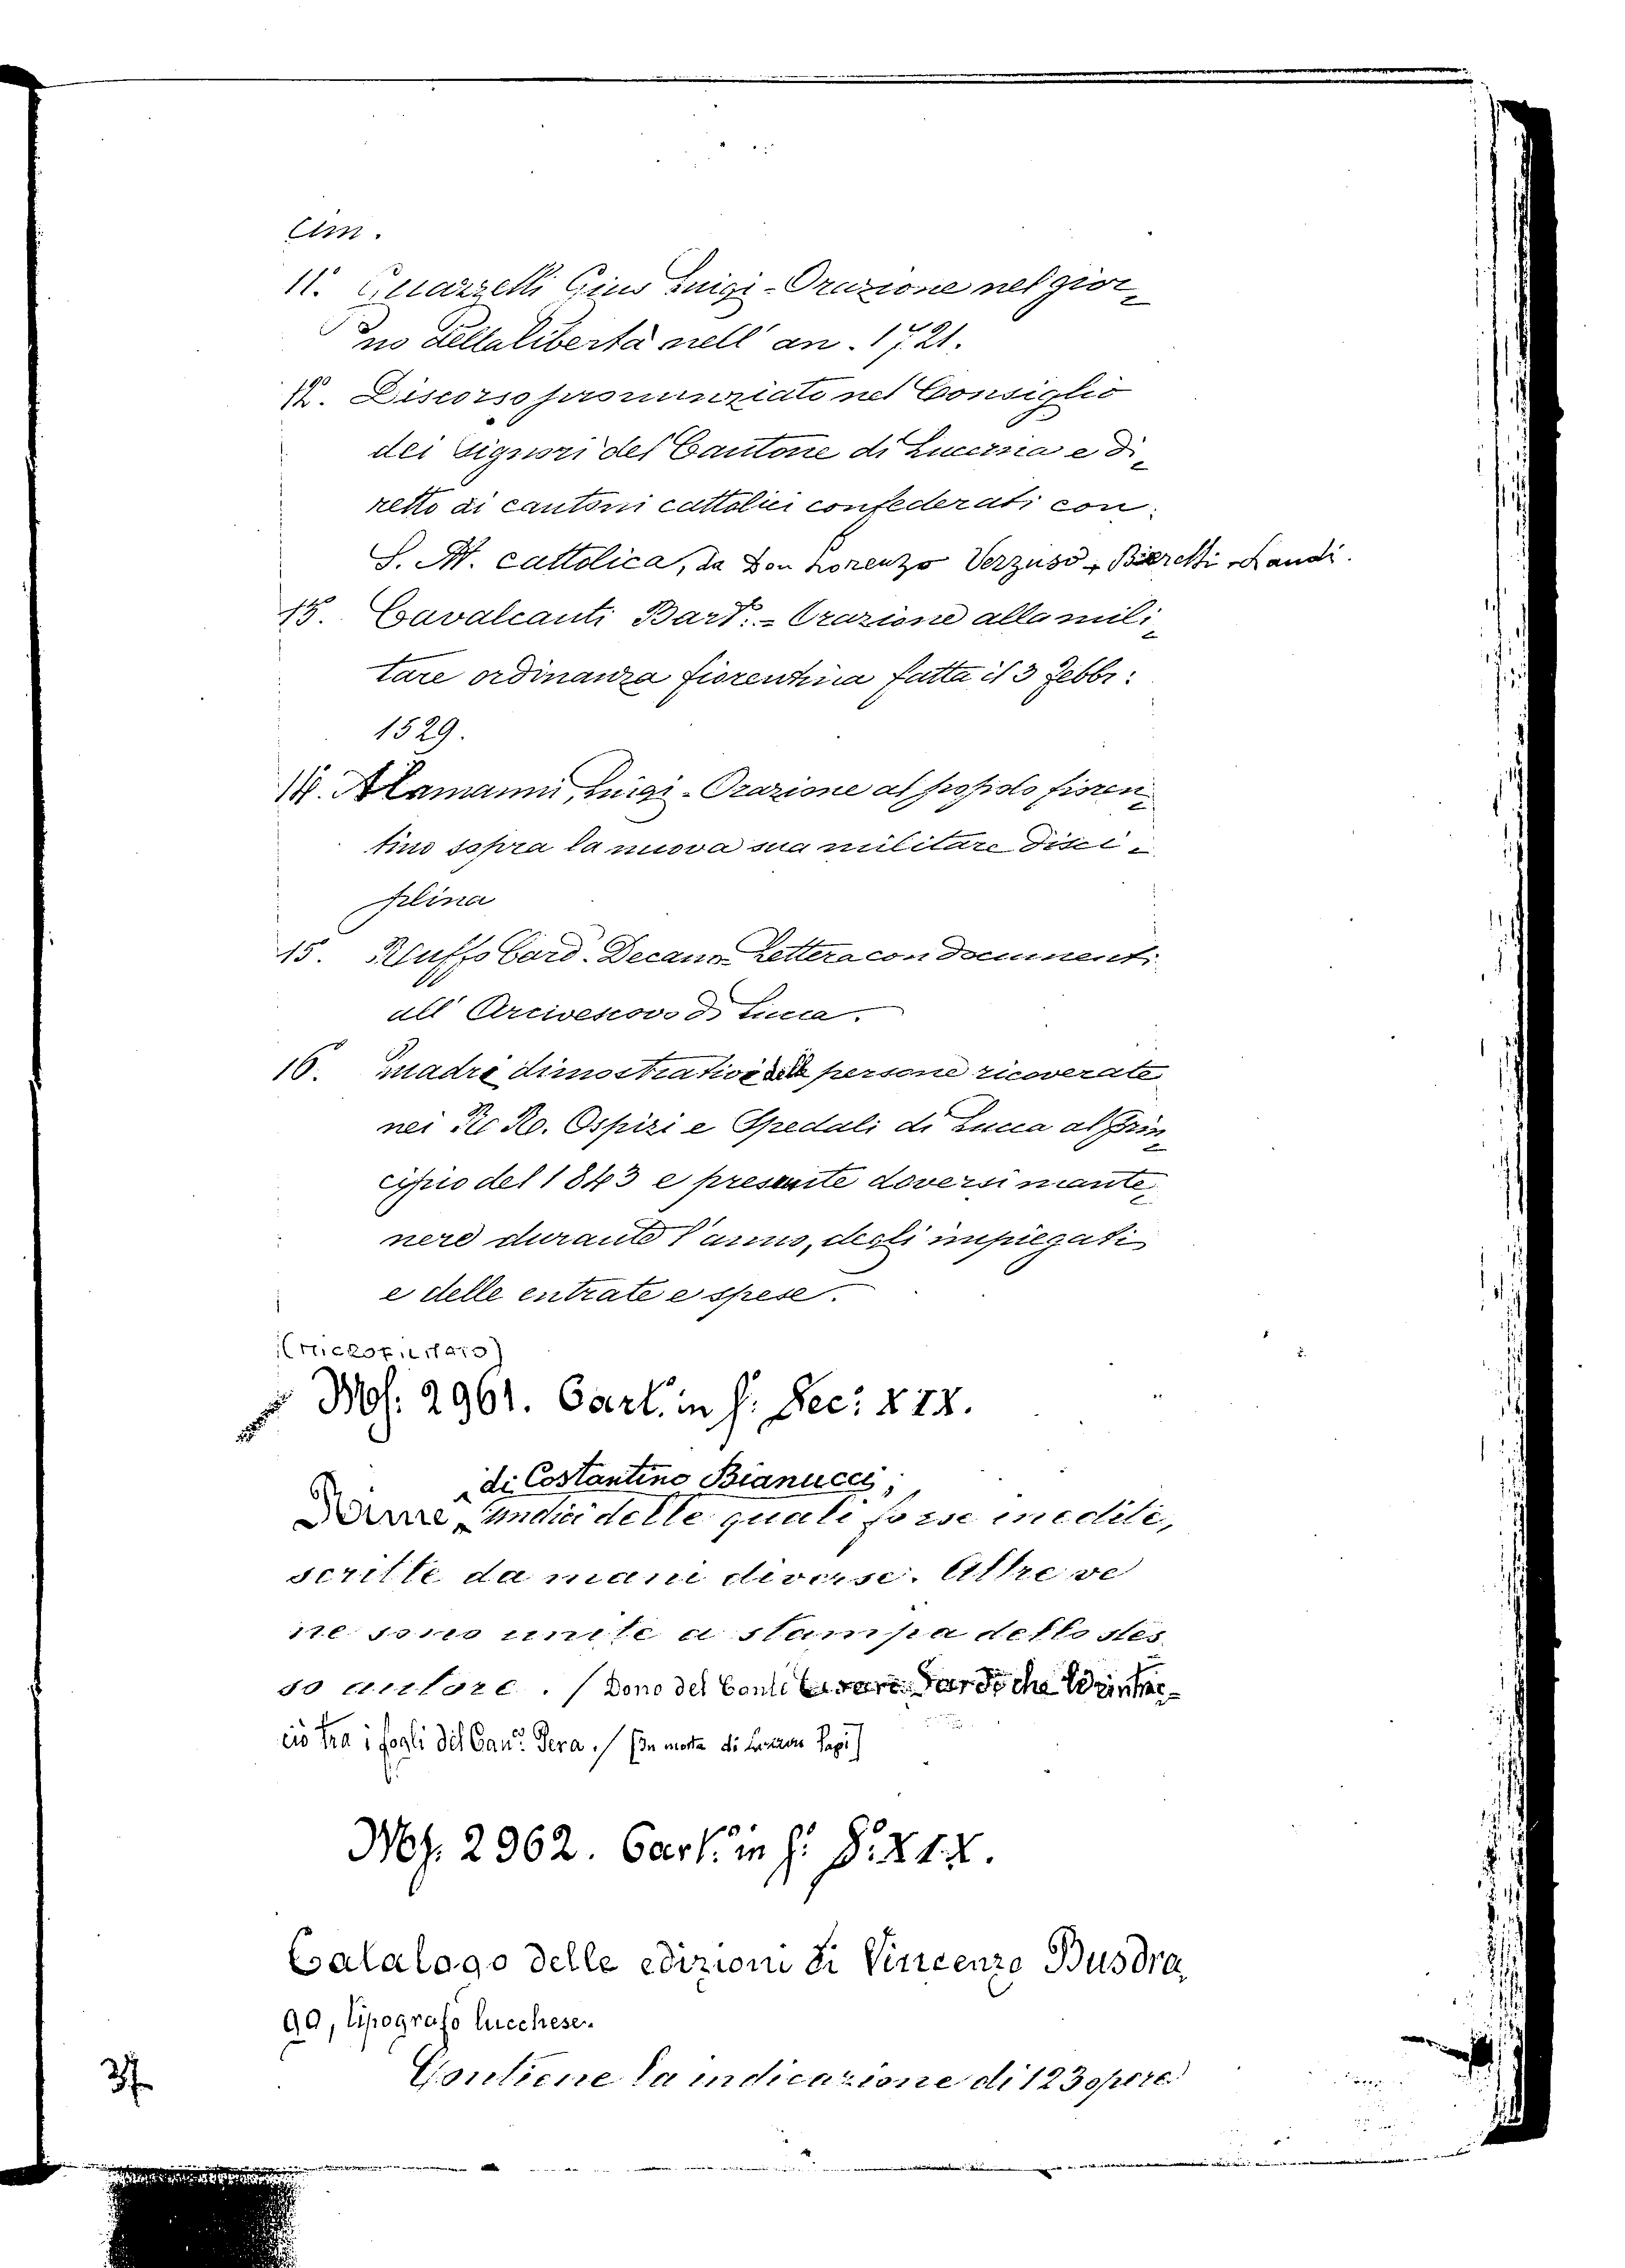 cim.
11. Guazzelli Gius Luigi - Orazione nel gior=
no della libertà nell' an. 1721.
12. Discorso pronunziato nel Consiglio
dei Signori del Cantone di Lucerna e di=
retto ai cantoni cattolici confederati con
S. M. cattolica, da Don Lorenzo Verzuso Landi.
13. Cavalcanti Bart: - Orazione alla mili=
tare ordinanza fiorentina fatta il 3 febbr:
1529.
14. Alamanni, Luigi - Orazione al popolo fioren=
tino sopra la nuova sua militare disci=
plina
15. Ruffo Card. Decano - Lettera con documenti
all' Arcivescovo di Lucca.
16. Quadri dimostrativi delle persone ricoverate
nei R. R. Ospizi e Spedali di Lucca al prin=
cipio del 1843 e presunte doversi mante=
nere durante l'anno, degli impiegati
e delle entrate e spese.
(MICROFILMATO)
Ms. 2961. Cart. in f: Sec: XIX.
di Costantino Bianucci,
Rime, undici delle quali forse inedite,
scritte da mani diverse. Altre ve
ne sono unite a stampa dello stes
so autore. / Dono del Conte Cesare Sardi che le rintrac=
ciò tra i fogli del Can.co Pera. / [In morte di Lazzaro Papi]
Ms. 2962. Cart. in f: S. XIX.
Catalogo delle edizioni di Vincenzo Busdra=
go, tipografo lucchese.
Contiene la indicazione di 123 opere
37